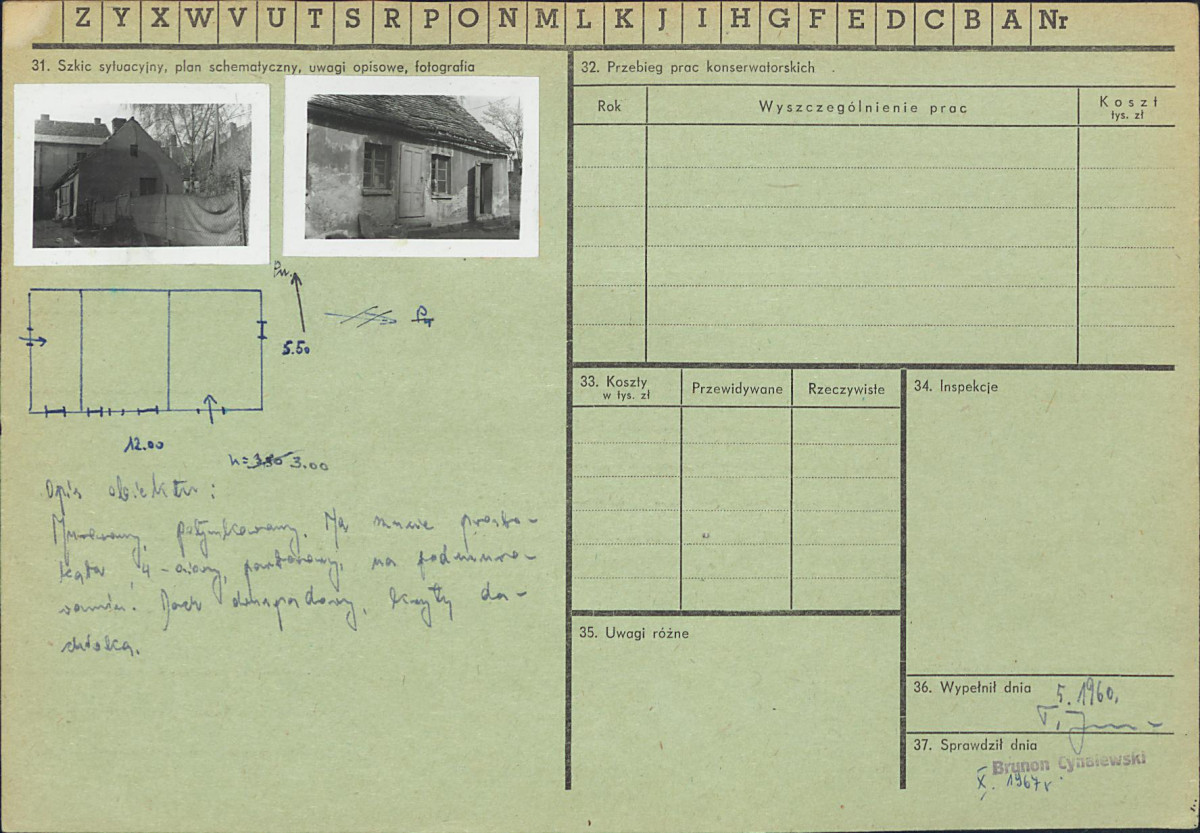 Z Y X W V U T S R P O N M L K J I H G F E D C B A Nr
31. Szkic sytuacyjny, plan schematyczny, uwagi opisowe, fotografia
Pn.
5.50
12.00
h = 3.50 3.00
Opis obiektu:
Murowany, potynkowany. Na rzucie prosto-
kąta, 4-osiowy, parterowy, na podmuro-
waniu. Dach dwuspadowy, kryty da-
chówką.
32. Przebieg prac konserwatorskich
Rok
Wyszczególnienie prac
Koszt
tys. zł
33. Koszty
w tys. zł
Przewidywane
Rzeczywiste
34. Inspekcje
35. Uwagi różne
36. Wypełnił dnia
5. 1960.
37. Sprawdził dnia
Brunon Cynalewski
X. 1967 r